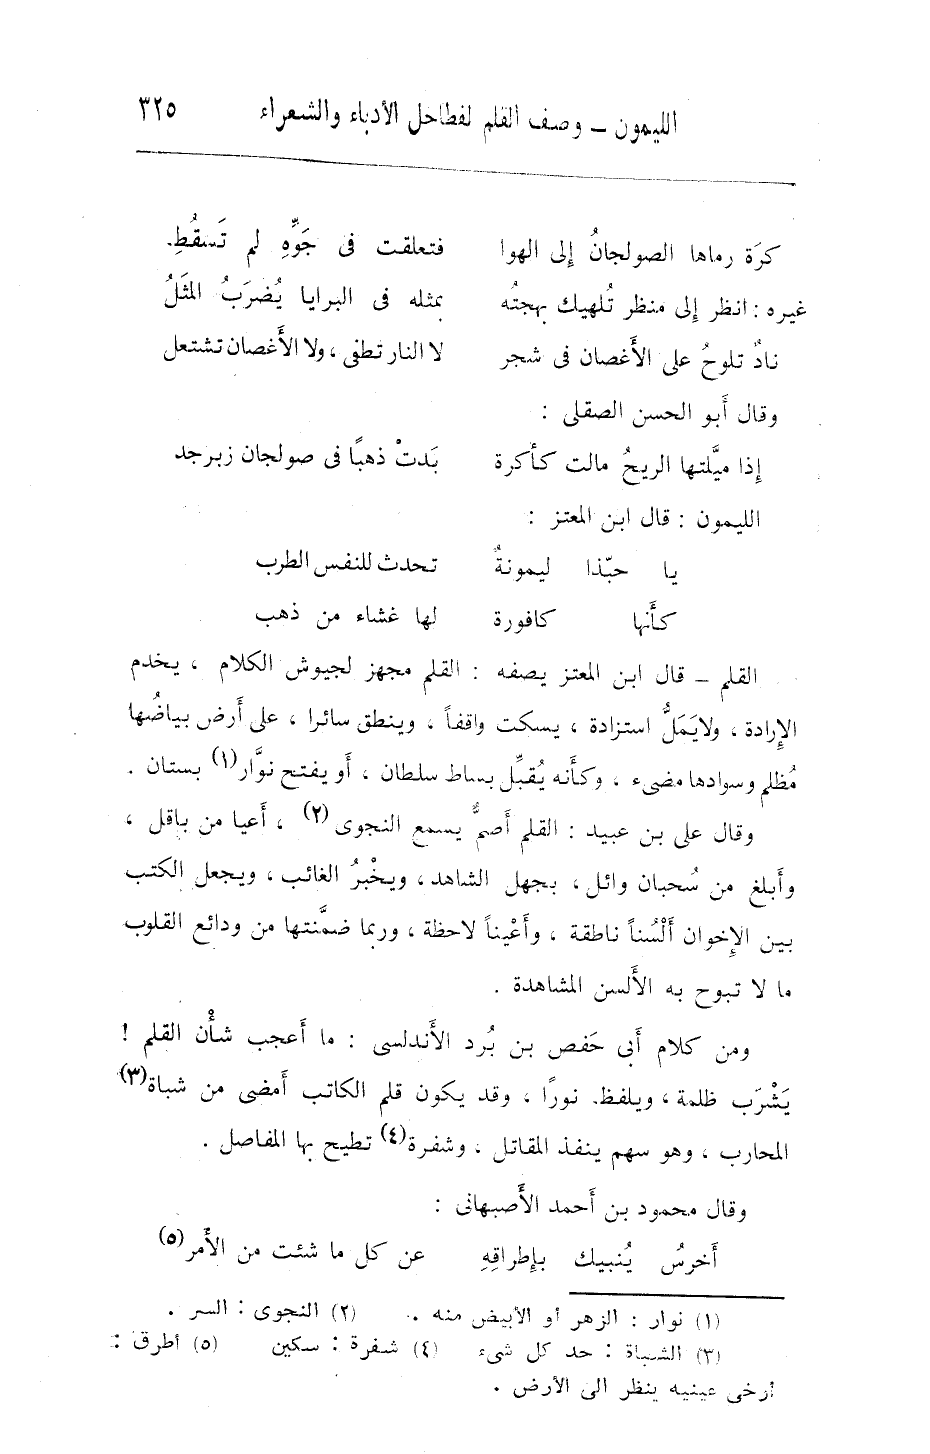 الليمون – وصف القلم لفطاحل الأدباء والشعراء ٣٢٥
كرَة رماها الصولجانُ إلى الهوا فتعلقت فى جَوِّهِ لم تَسقُطِ.
غيره : انظر إلى منظر تُلهيك بهجتُه بمثله فى البرايا يُضرَبُ المثَلُ
نارٌ تلوحُ على الأَغصان فى شجر لا النار تطفى ، ولا الأَغصان تشتعل
وقال أَبو الحسن الصقلى :
إذا ميَّلتها الريحُ مالت كأكرة بَدتْ ذهبًا فى صولجان زبرجد
الليمون : قال ابن المعتز :
يا حبّذا ليمونةٌ تحدث للنفس الطرب
كأَنها كافورة لها غشاء من ذهب
القلم – قال ابن المعتز يصفه : القلم مجهز لجيوش الكلام ، يخدم
الإرادة ، ولايَمَلُّ استزادة ، يسكت واقفاً ، وينطق سائرا ، على أَرض بياضُها
مُظلم وسوادها مضىء ، وكأَنه يُقبِّل بساط سلطان ، أَو يفتح نوَّار(١) بستان .
وقال على بن عبيد : القلم أَصمُّ يسمع النجوى (٢) ، أَعيا من باقل ،
وأَبلغ من سُحبان وائل ، يجهل الشاهد ، ويخْبرُ الغائب ، ويجعل الكتب
بين الإخوان أَلْسُناً ناطقة ، وأَعْيناً لاحظة ، وربما ضمَّنتها من ودائع القلوب
ما لا تبوح به الأَلسن المشاهدة .
ومن كلام أَبى حَفص بن بُرد الأَندلسى : ما أَعجب شأْن القلم !
يَشْرَب ظلمة ، ويلفظ. نورًا ، وقد يكون قلم الكاتب أَمضى من شباة(٣)
المحارب ، وهو سهم ينفذ المقاتل ، وشفرة(٤) تطيح بها المفاصل .
وقال محمود بن أَحمد الأَصبهانى :
أَخرسُ يُنبيك بإطراقِهِ عن كل ما شئت من الأَمر(٥)
(١) نوار : الزهر أو الأبيض منه . (٢) النجوى : السر .
(٣) الشباة : حد كل شىء (٤) شفرة : سكين (٥) أطرق :
أرخى عينيه ينظر الى الأرض .